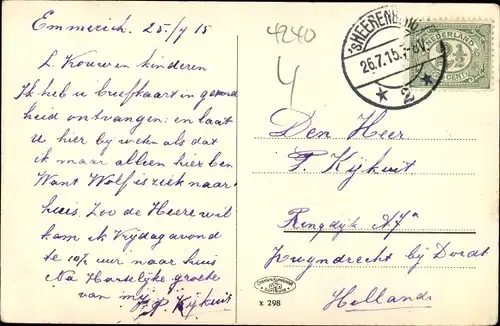 Emmerich. 25./7 15
L. Vrouw en kinderen
Ik heb u briefkaart in gezond
heid ontvangen: en laat
u hier bij weten als dat
ik maar alleen hier ben
Want Wolf is ziek naar
huis. Zoo de Heere wil
kom ik Vrijdagavond
te 10½ uur naar huis
Na Hartelijke groete
van mij F. P. Kijkuit
4240
4
'SHEERENBERG
26.7.15.
2
NEDERLAND
2½
CENT
Den Heer
P. Kijkuit
Ringdijk A7a
Zwyndrecht bij Dordt
Holland
x 298